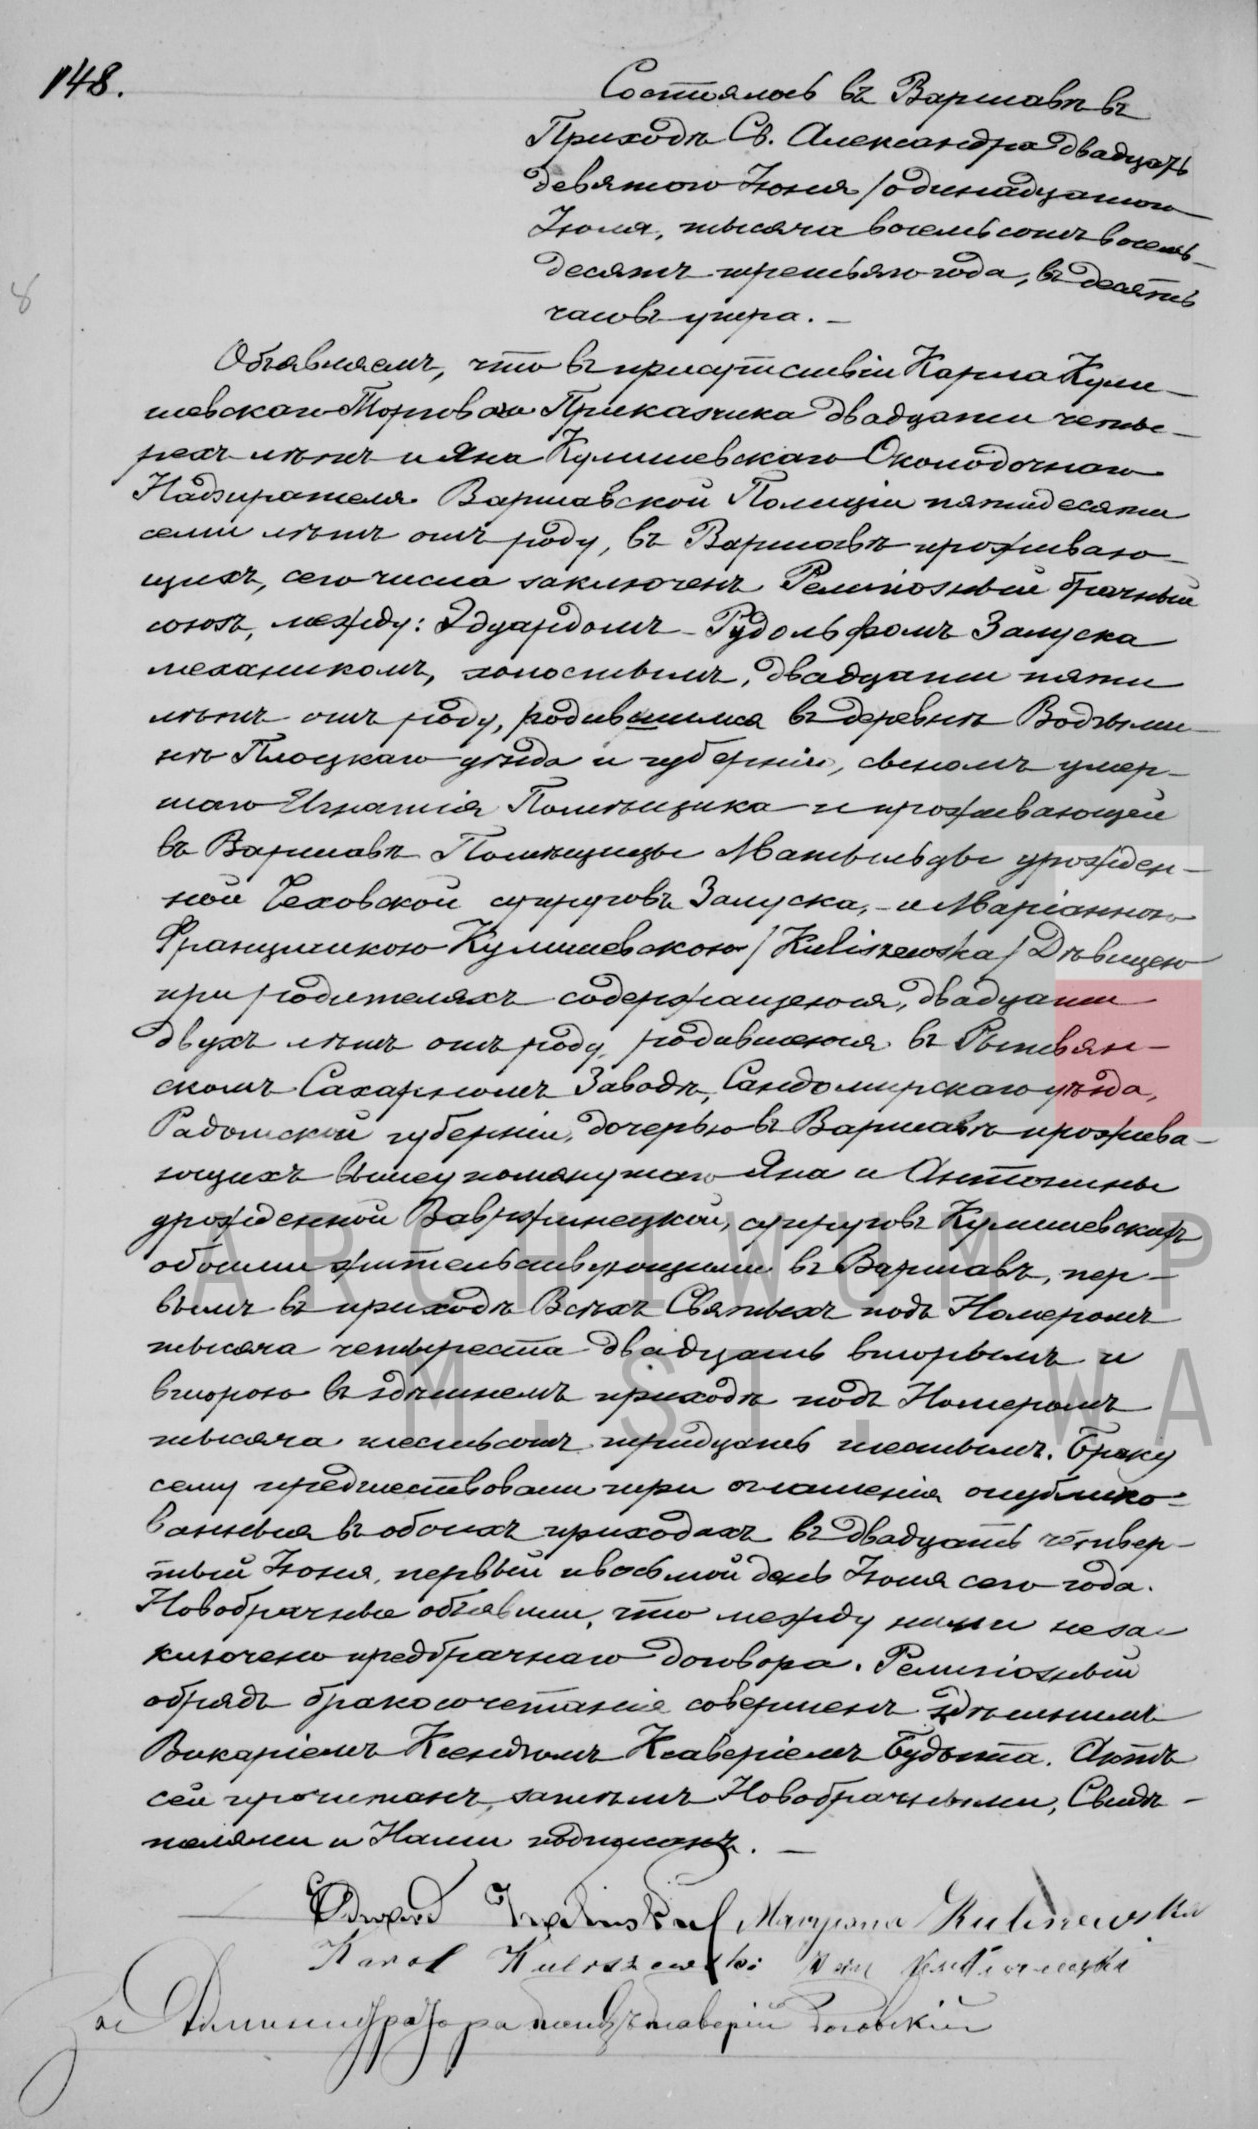 148.
Состоялось въ Варшавѣ въ
Приходѣ Св. Александра двадцать
девятого Іюня / одинадцатого
Іюля, тысяча восемьсотъ восемь-
десятъ третьяго года, въ десять
часовъ утра. —
Объявляемъ, что въ присутствіи Карла Кули-
шевскаго Торговаго Приказчика двадцати четы-
рехъ лѣтъ и Яна Кулишевскаго Околодочнаго
Надзирателя Варшавской Полиціи пятидесяти
семи лѣтъ отъ роду, въ Варшавѣ прожива-
ющихъ, сего числа заключенъ Религіозный брачный
союзъ, между: Эдуардомъ-Рудольфомъ Залуска
механикомъ, холостымъ, двадцати пяти
лѣтъ отъ роду, родившимся въ деревнѣ Водзыми-
нѣ Плоцкаго уѣзда и губерніи, сыномъ умер-
шаго Игнатія Помѣщика и проживающей
въ Варшавѣ Помѣщицы Матыльды урожден-
ной Чеховской супруговъ Залуска, — и Маріанною
Францишкою Кулишевскою / Kuliszewska / Дѣвицею
при родителяхъ содержащеюся, двадцати
двухъ лѣтъ отъ роду, родившеюся въ Рытвян-
скомъ Сахарномъ Заводѣ, Сандомирскаго уѣзда,
Радомской губерніи, дочерью въ Варшавѣ прожива-
ющихъ вышеупомянутаго Яна и Антонины
урожденной Вавржинецкой, супруговъ Кулишевскихъ
обоими жительствующими въ Варшавѣ, пер-
вымъ въ приходѣ Всѣхъ Святыхъ подъ Номеромъ
тысяча четыреста двадцать вторымъ и
второю въ здѣшнемъ приходѣ подъ Номеромъ
тысяча шестьсотъ тридцать шестымъ. Браку
сему предшествовали три оглашенія опублико-
ванныя въ обоихъ приходахъ въ двадцать четвер-
тый Іюня, первый и восьмой день Іюля сего года.
Новобрачные объявили, что между ними неза-
ключено предбрачнаго договора. Религіозный
обрядъ бракосочетанія совершенъ здѣшнимъ
Викаріемъ Ксендзомъ Ксаверіемъ Будзта. Актъ
сей прочитанъ, затѣмъ Новобрачными, Свидѣ-
телями и Нами подписанъ. —
Edward Maryjana Kuliszewska
Karol Kuliszewski
за Администратора
8
ARCHIWUM P
M. ST. WA